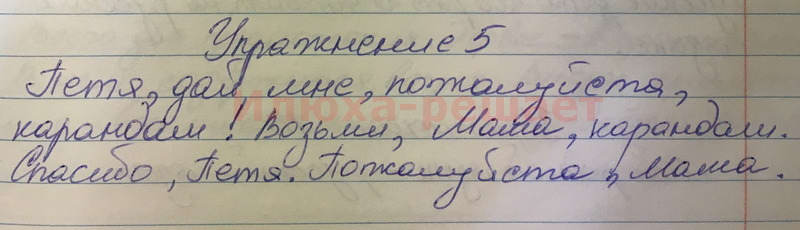 Упражнение 5
Петя, дай мне, пожалуйста,
Илюха-решает
карандаш! Возьми, Мама, карандаш.
Спасибо, Петя. Пожалуйста, мама.